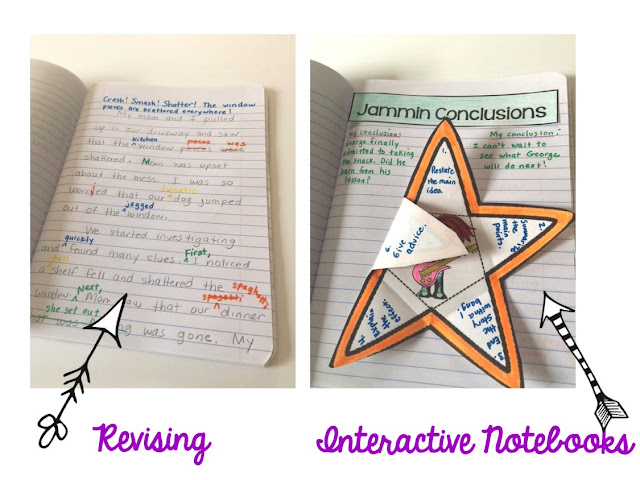 Crash! Smash! Shatter! The window
pieces are scattered everywhere!
My mom and I pulled
up in our driveway and saw
kitchen pieces was
that the window pieces were
shattered. Mom was upset
about the mess. I was so
lunatic
worried that our dog jumped
jagged
out of the window.
We started investigating
quickly First,
and found many clues. I noticed
tall
a shelf fell and shattered the spaghetti
Next, spagetti
window. Mom saw that our dinner
she set out
was gone. My
Revising
Jammin Conclusions
My conclusion:
George finally
admitted to taking
the snack. Did he
learn from his
lesson?
My conclusion:
I can't wait to
see what George
will do next!
1.
Restate
the main
idea.
2.
Summarize
the
main
points.
3.
The End
Story
with a
bang!
4.
Explain
the
effect
6.
Give
advice.
Interactive Notebooks